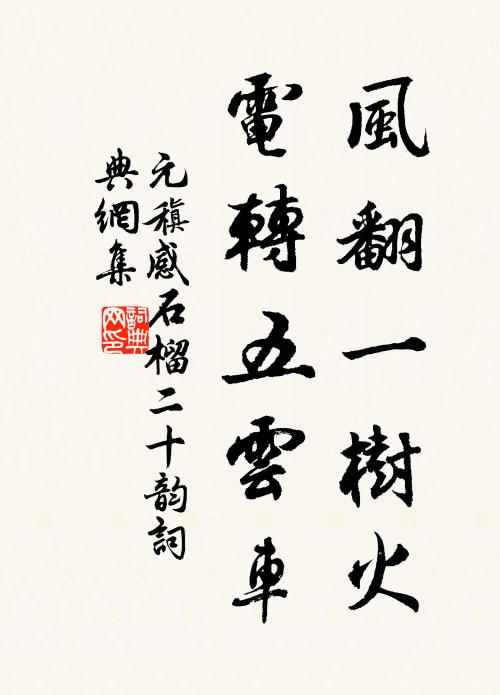 風翻一樹火
電轉五雲車
元稹感石榴二十韵詞
典網集
詞典网印